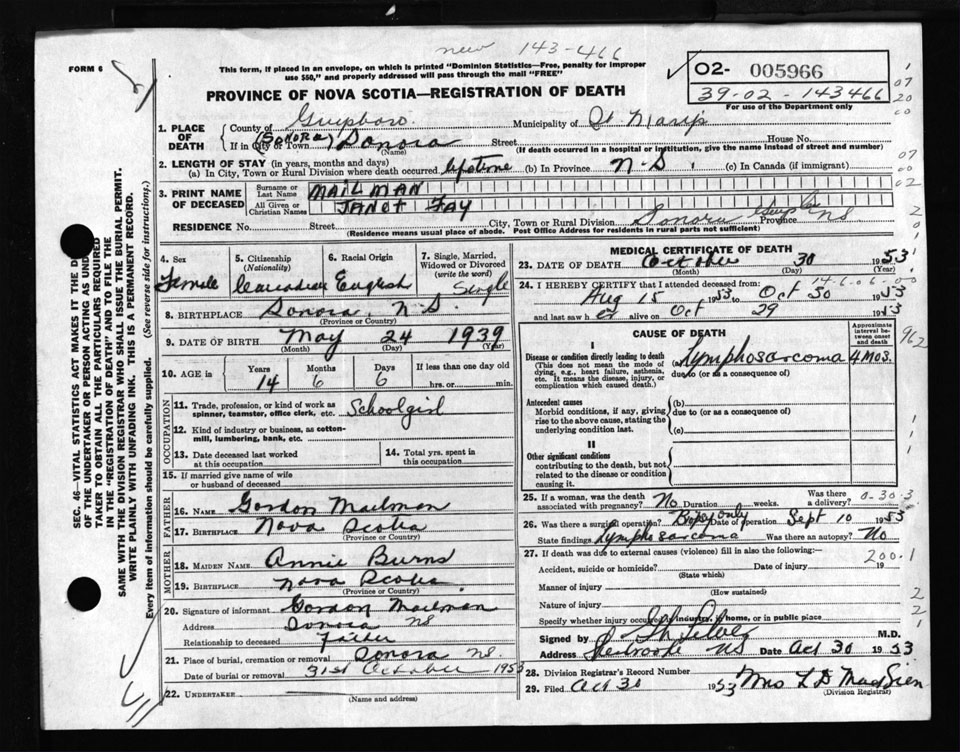 new 143-466
FORM 6
This form, if placed in an envelope, on which is printed "Dominion Statistics—Free, penalty for improper
use $50," and properly addressed will pass through the mail "FREE"
PROVINCE OF NOVA SCOTIA—REGISTRATION OF DEATH
02- 005966
39-02-143466
For use of the Department only
1. PLACE OF DEATH
County of Guysboro. Municipality of St. Marys
If in City or Town (SONORA) Sonora Street House No.
(Name) (If death occurred in a hospital or institution, give the name instead of street and number)
2. LENGTH OF STAY (in years, months and days)
(a) In City, Town or Rural Division where death occurred lifetime (b) In Province N.S. (c) In Canada (if immigrant)
3. PRINT NAME OF DECEASED
Surname or Last Name MAILMAN
All Given or Christian Names JANET FAY
RESIDENCE No. Street City, Town or Rural Division Sonora Province NS
(Residence means usual place of abode. Post Office Address for residents in rural parts not sufficient)
4. Sex Female
5. Citizenship (Nationality) Canadian
6. Racial Origin English
7. Single, Married, Widowed or Divorced (write the word) Single
8. BIRTHPLACE Sonora, N.S.
(Province or Country)
9. DATE OF BIRTH May 24 1939
(Month) (Day) (Year)
10. AGE in Years 14 Months 6 Days 6 If less than one day old hrs. or min.
OCCUPATION
11. Trade, profession, or kind of work as spinner, teamster, office clerk, etc. Schoolgirl
12. Kind of industry or business, as cotton-mill, lumbering, bank, etc.
13. Date deceased last worked at this occupation
14. Total yrs. spent in this occupation
15. If married give name of wife or husband of deceased
FATHER
16. NAME Gordon Mailman
17. BIRTHPLACE Nova Scotia
(Province or Country)
MOTHER
18. MAIDEN NAME Annie Burns
19. BIRTHPLACE Nova Scotia
(Province or Country)
20. Signature of informant Gordon Mailman
Address Sonora NS
Relationship to deceased Father
21. Place of burial, cremation or removal Sonora NS.
Date of burial or removal 31st October 1953
22. UNDERTAKER
(Name and address)
MEDICAL CERTIFICATE OF DEATH
23. DATE OF DEATH October 30 1953
(Month) (Day) (Year)
24. I HEREBY CERTIFY that I attended deceased from:
Aug 15 1953 to Oct 30 1953
and last saw h er alive on Oct 29 1953
CAUSE OF DEATH
Approximate interval between onset and death
I
Disease or condition directly leading to death
(This does not mean the mode of dying, e.g., heart failure, asthenia, etc. It means the disease, injury, or complication which caused death.)
Lymphosarcoma 4 Mos.
due to (or as a consequence of)
Antecedent causes
Morbid conditions, if any, giving rise to the above cause, stating the underlying condition last.
(b)
due to (or as a consequence of)
(c)
II
Other significant conditions
contributing to the death, but not related to the disease or condition causing it.
25. If a woman, was the death associated with pregnancy? No Duration weeks. Was there a delivery?
26. Was there a surgical operation? Biopsy only Date of operation Sept 10 1953
State findings Lymphosarcoma Was there an autopsy? No
27. If death was due to external causes (violence) fill in also the following:—
Accident, suicide or homicide? Date of injury 19
(State which)
Manner of injury
(How sustained)
Nature of injury
Specify whether injury occurred in industry, in home, or in public place
Signed by M.D.
Address Sherbrooke NS Date Oct 30 1953
28. Division Registrar's Record Number
29. Filed Oct 30 1953
(Division Registrar)
SEC. 46—VITAL STATISTICS ACT MAKES IT THE D
OF THE UNDERTAKER OR PERSON ACTING AS UND
TAKER TO OBTAIN ALL THE PARTICULARS REQUIRED
IN THE "REGISTRATION OF DEATH" AND TO FILE THE
SAME WITH THE DIVISION REGISTRAR WHO SHALL ISSUE THE BURIAL PERMIT.
WRITE PLAINLY WITH UNFADING INK. THIS IS A PERMANENT RECORD.
Every item of information should be carefully supplied. (See reverse side for instructions.)